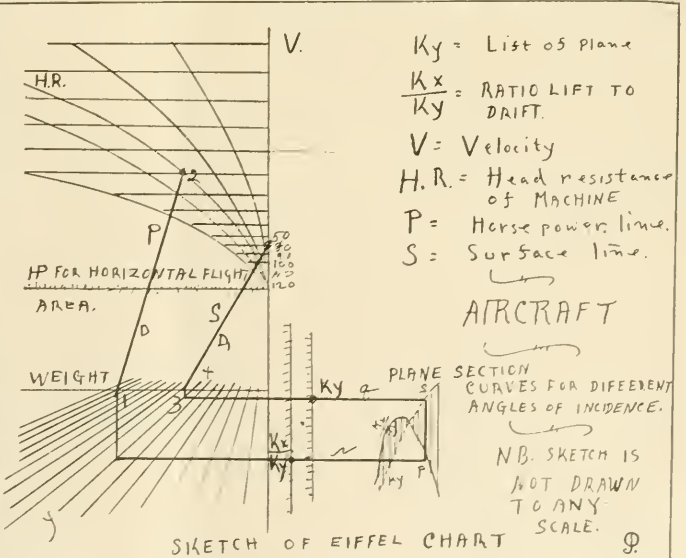 V.
H.R.
P
50
70
100
120
HP FOR HORIZONTAL FLIGHT
AREA.
D
S
A
WEIGHT
1
2
3
x
y
Ky
a
Kx
Ky
N
S
P
Ky = List of plane
Kx
Ky = RATIO LIFT TO
DRIFT.
V = Velocity
H.R. = Head resistance
of MACHINE
P = Horse power line.
S = Surface line.
AIRCRAFT
PLANE SECTION
CURVES FOR DIFFERENT
ANGLES OF INCIDENCE.
NB. SKETCH IS
NOT DRAWN
TO ANY
SCALE.
SKETCH OF EIFFEL CHART